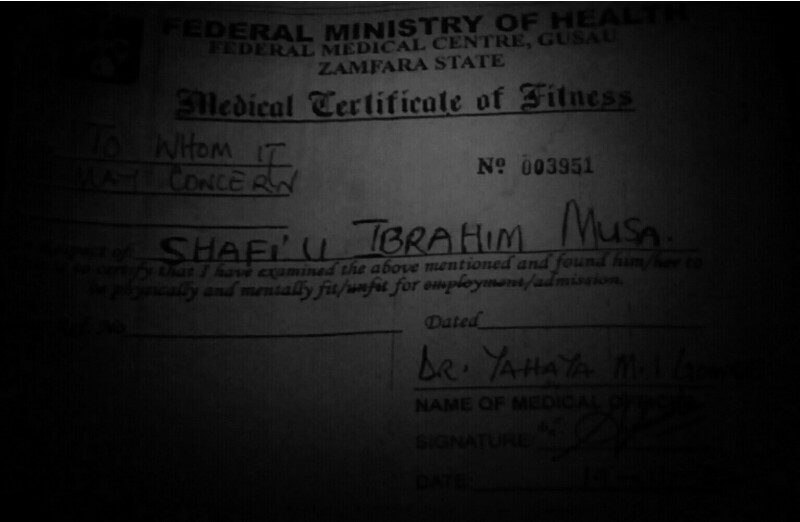 FEDERAL MINISTRY OF HEALTH
FEDERAL MEDICAL CENTRE, GUSAU
ZAMFARA STATE
Medical Certificate of Fitness
TO WHOM IT
MAY CONCERN
Nº 003951
respect of SHAFI'U IBRAHIM MUSA.
to certify that I have examined the above mentioned and found him/her to
be physically and mentally fit/unfit for employment/admission.
Ref. No
Dated
DR. YAHAYA M.I
NAME OF MEDICAL OFFICER
SIGNATURE
DATE